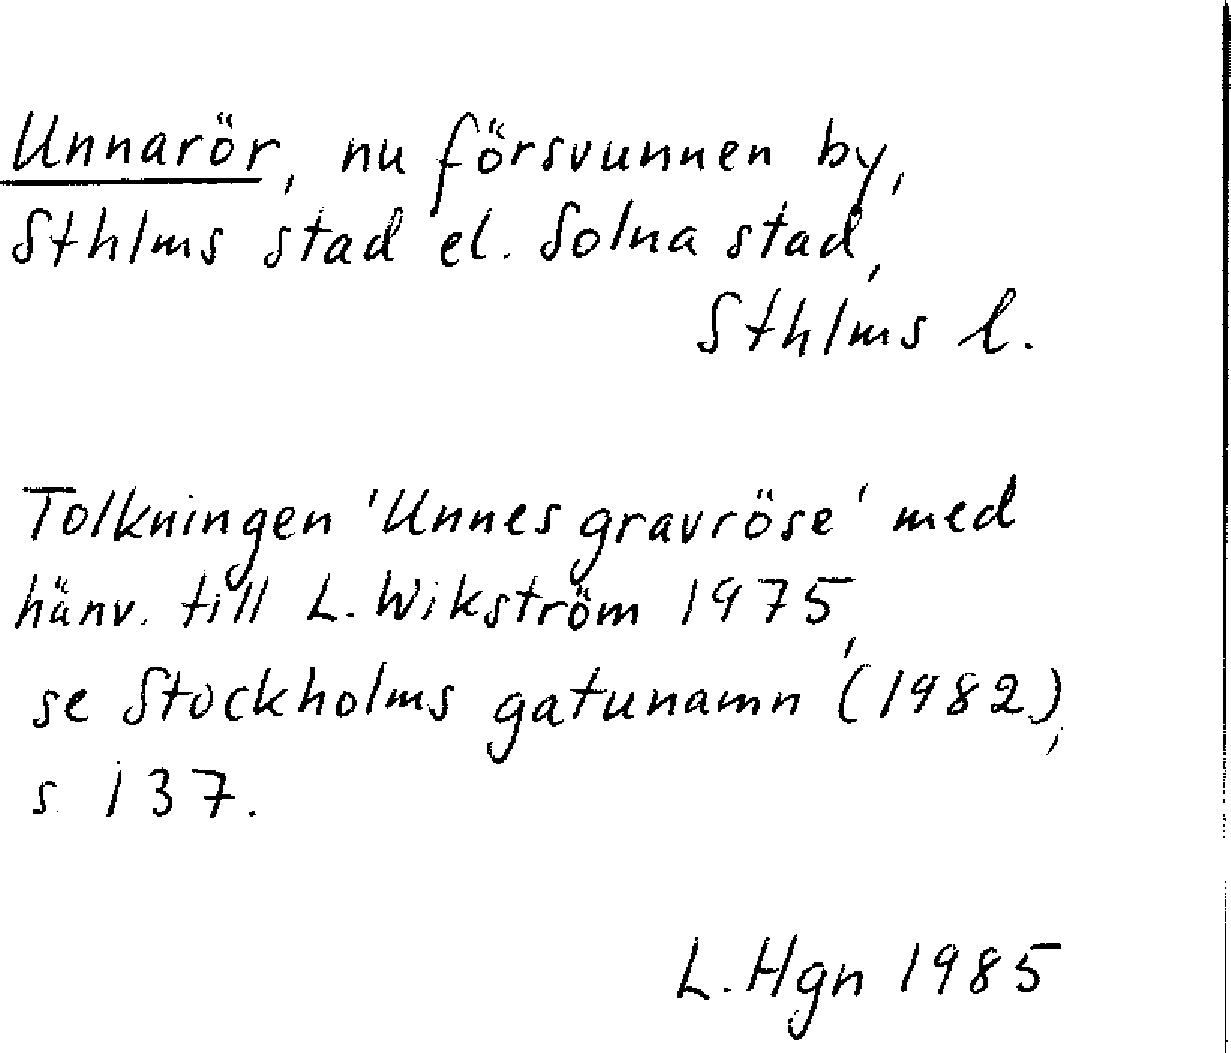 Unnarör, nu försvunnen by,
Sthlms stad el. Solna stad,
Sthlms l.
Tolkningen 'Unnes gravröse' med
hänv. till L. Wikström 1975,
se Stockholms gatunamn (1982),
s 137.
L. Hgn 1985